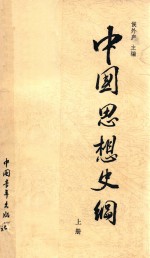 侯外庐 主编
中国思想史纲
上册
中国青年出版社